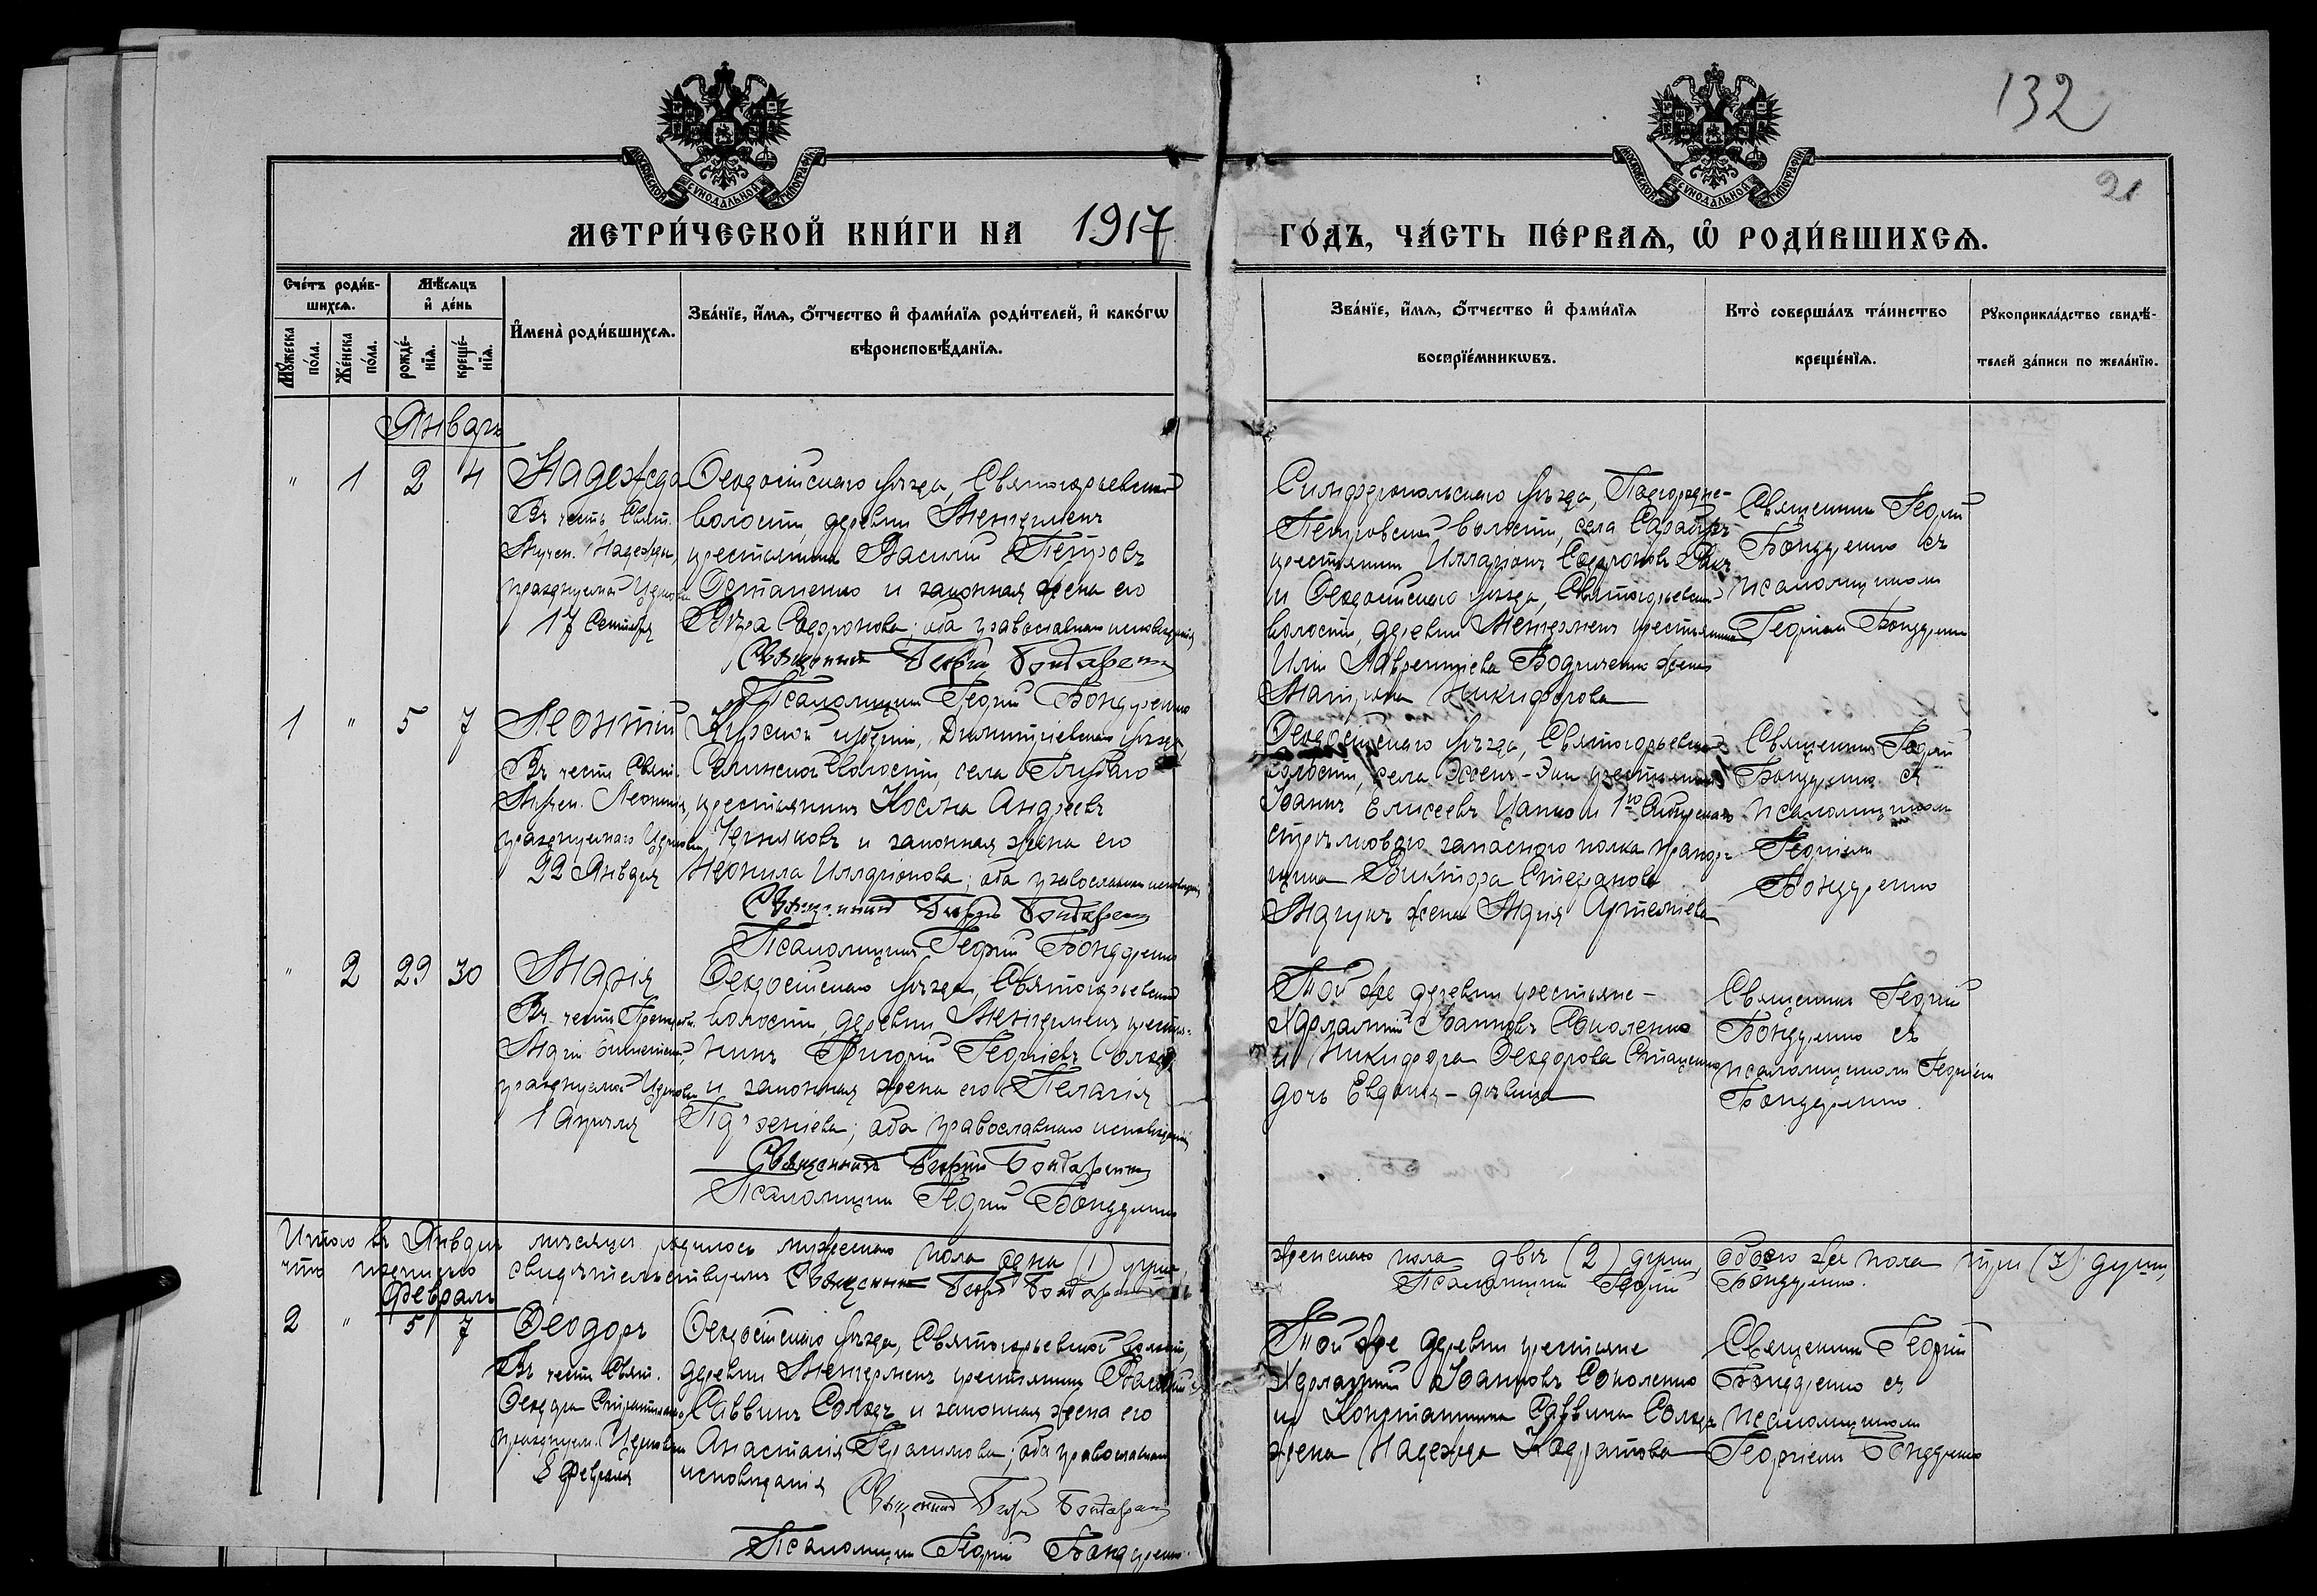 132
21
МОСКОВСКОЙ СѴНОДАЛЬНОЙ ТИПОГРАФІИ
МОСКОВСКОЙ СѴНОДАЛЬНОЙ ТИПОГРАФІИ
МЕТРИ́ЧЕСКОЙ КНИ́ГИ НА 1917
ГО́ДЪ, ЧА́СТЬ ПЕ́РВАѦ, Ѡ҆ РОДИ́ВШИХСѦ.
Сче́тъ роди́в-
шихсѧ.
Мꙋ́жеска по́ла.
Же́нска по́ла.
Мѣ́сѧцъ
и҆ де́нь
рожде́-
нїѧ.
креще́-
нїѧ.
И҆мена̀ роди́вшихсѧ.
Зва́нїе, и҆́мѧ, ѻ҆́тчество и҆ фами́лїѧ роди́телей, и҆ како́гѡ
вѣроисповѣ́данїѧ.
Зва́нїе, и҆́мѧ, ѻ҆́тчество и҆ фами́лїѧ
воспрїе́мникѡвъ.
Кто̀ соверша́лъ та́инство
креще́нїѧ.
Рꙋкоприкла́дство свидѣ́-
телей за́писи по жела́нїю.
Январь
" 1 2 4
Надежда
Въ честь Свят.
Мучен. Надежды,
празднуемой Церковью
17 Сентября
Ѳеодосійскаго уѣзда, Святогорьевской
волости, деревни Менгермень
крестьянинъ Василій Петровъ
Остапенко и законная жена его
Вѣра Софронова; оба православнаго исповѣданія
Священникъ Георгій Бондаренко
Псаломщикъ Георгій Бондаренко
Симферопольскаго уѣзда, Подгородне-
Петровской волости, села
крестьянинъ Илларіонъ Софроновъ
и Ѳеодосійскаго уѣзда, Святогорьевской
волости, деревни Менгермень крестьянина
Иліи Лаврентіева жена
Никифорова
Священникъ Георгій
Бондаренко съ
псаломщикомъ
Георгіемъ Бондаренко
1 " 5 7
Леонтій
Въ честь Свят.
Мучен. Леонтія,
празднуемаго Церковью
22 Января
Курской губерніи, Димитріевскаго уѣзда,
волости, села
крестьянинъ Косма Андреевъ
Черняковъ и законная жена его
Неонила Илларіонова; оба православнаго исповѣданія
Священникъ Георгій Бондаренко
Псаломщикъ Георгій Бондаренко
Ѳеодосійскаго уѣзда, Святогорьевской
волости, села крестьянинъ
Іоаннъ Елисеевъ Цапко и 1го
стрѣлковаго запаснаго полка прапор-
щика Виктора Стефанова
жена Марія Артеміева
Священникъ Георгій
Бондаренко съ
псаломщикомъ
Георгіемъ
Бондаренко
" 2 29 30
Марія
Въ честь Препод.
Маріи Египетской,
празднуемой Церковью
1 Апрѣля
Ѳеодосійскаго уѣзда, Святогорьевской
волости, деревни Менгермень крестья-
нинъ Григорій Георгіевъ
и законная жена его Пелагія
Парѳеніева; оба православнаго исповѣданія
Священникъ Георгій Бондаренко
Псаломщикъ Георгій Бондаренко
Той же деревни крестьяне -
Харлампій Іоанновъ Соколенко
и Никифора Ѳеодорова Стаценко
дочь Евдокія - дѣвица
Священникъ Георгій
Бондаренко съ
псаломщикомъ Георгіемъ
Бондаренко.
Итого въ Январѣ мѣсяцѣ родилось мужескаго пола одна (1) душа,
женскаго пола двѣ (2) души, обоего же пола три (3) души,
что
свидѣтельствуемъ Священникъ Георгій Бондаренко
Псаломщикъ Георгій Бондаренко.
Февраль
2 " 5 7
Ѳеодоръ
Въ честь Свят.
Ѳеодора Стратилата,
празднуем. Церковью
8 Февраля
Ѳеодосійскаго уѣзда, Святогорьевской волости,
деревни Менгермень крестьянинъ Василій
Саввинъ и законная жена его
Анастасія Герасимова; оба православнаго
исповѣданія
Священникъ Георгій Бондаренко
Псаломщикъ Георгій Бондаренко.
Той же деревни крестьяне
Харлампій Іоанновъ Соколенко
и Константина Саввина
жена Надежда Кодратова
Священникъ Георгій
Бондаренко съ
псаломщикомъ
Георгіемъ Бондаренко